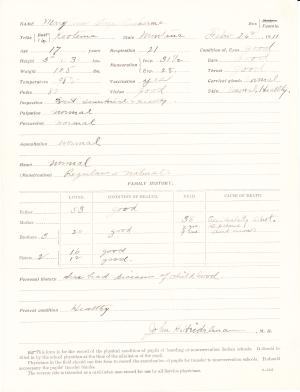 NAME Mary
Sex Female
Tribe Kootenai State Montana Feb 24th 1911
Age 17 years Respiration 21 Condition of Eyes Good
Height 5' 3 Mensuration Insp. 31½ Ears Good
Weight 105 Exp. 28 Throat Good
Temperature 98⅗ Vaccination yes Cervical glands normal
Pulse 80 Vision Good Skin Healthy
Inspection
Palpation normal
Percussion normal
Auscultation normal
Heart normal
(Menstruation) Regular & natural
FAMILY HISTORY.
LIVING. CONDITION OF HEALTH. DEAD. CAUSE OF DEATH.
Father 53 good
Mother 36
Brothers 3 20 good
Sisters 2 16 good
12 good
Personal history Has had diseases of childhood
Present condition Healthy
M. D.
This form is to be the record of the physical condition of pupils of boarding or nonreservation Indian schools. It should be
filled in by the school physician at the time of the admission of the child.
Physicians in the field should use this form to record the examination of pupils for transfer to nonreservation schools. It should
accompany the pupils' transfer blanks.
The reverse side is intended as a card index case record for use by all Service physicians.